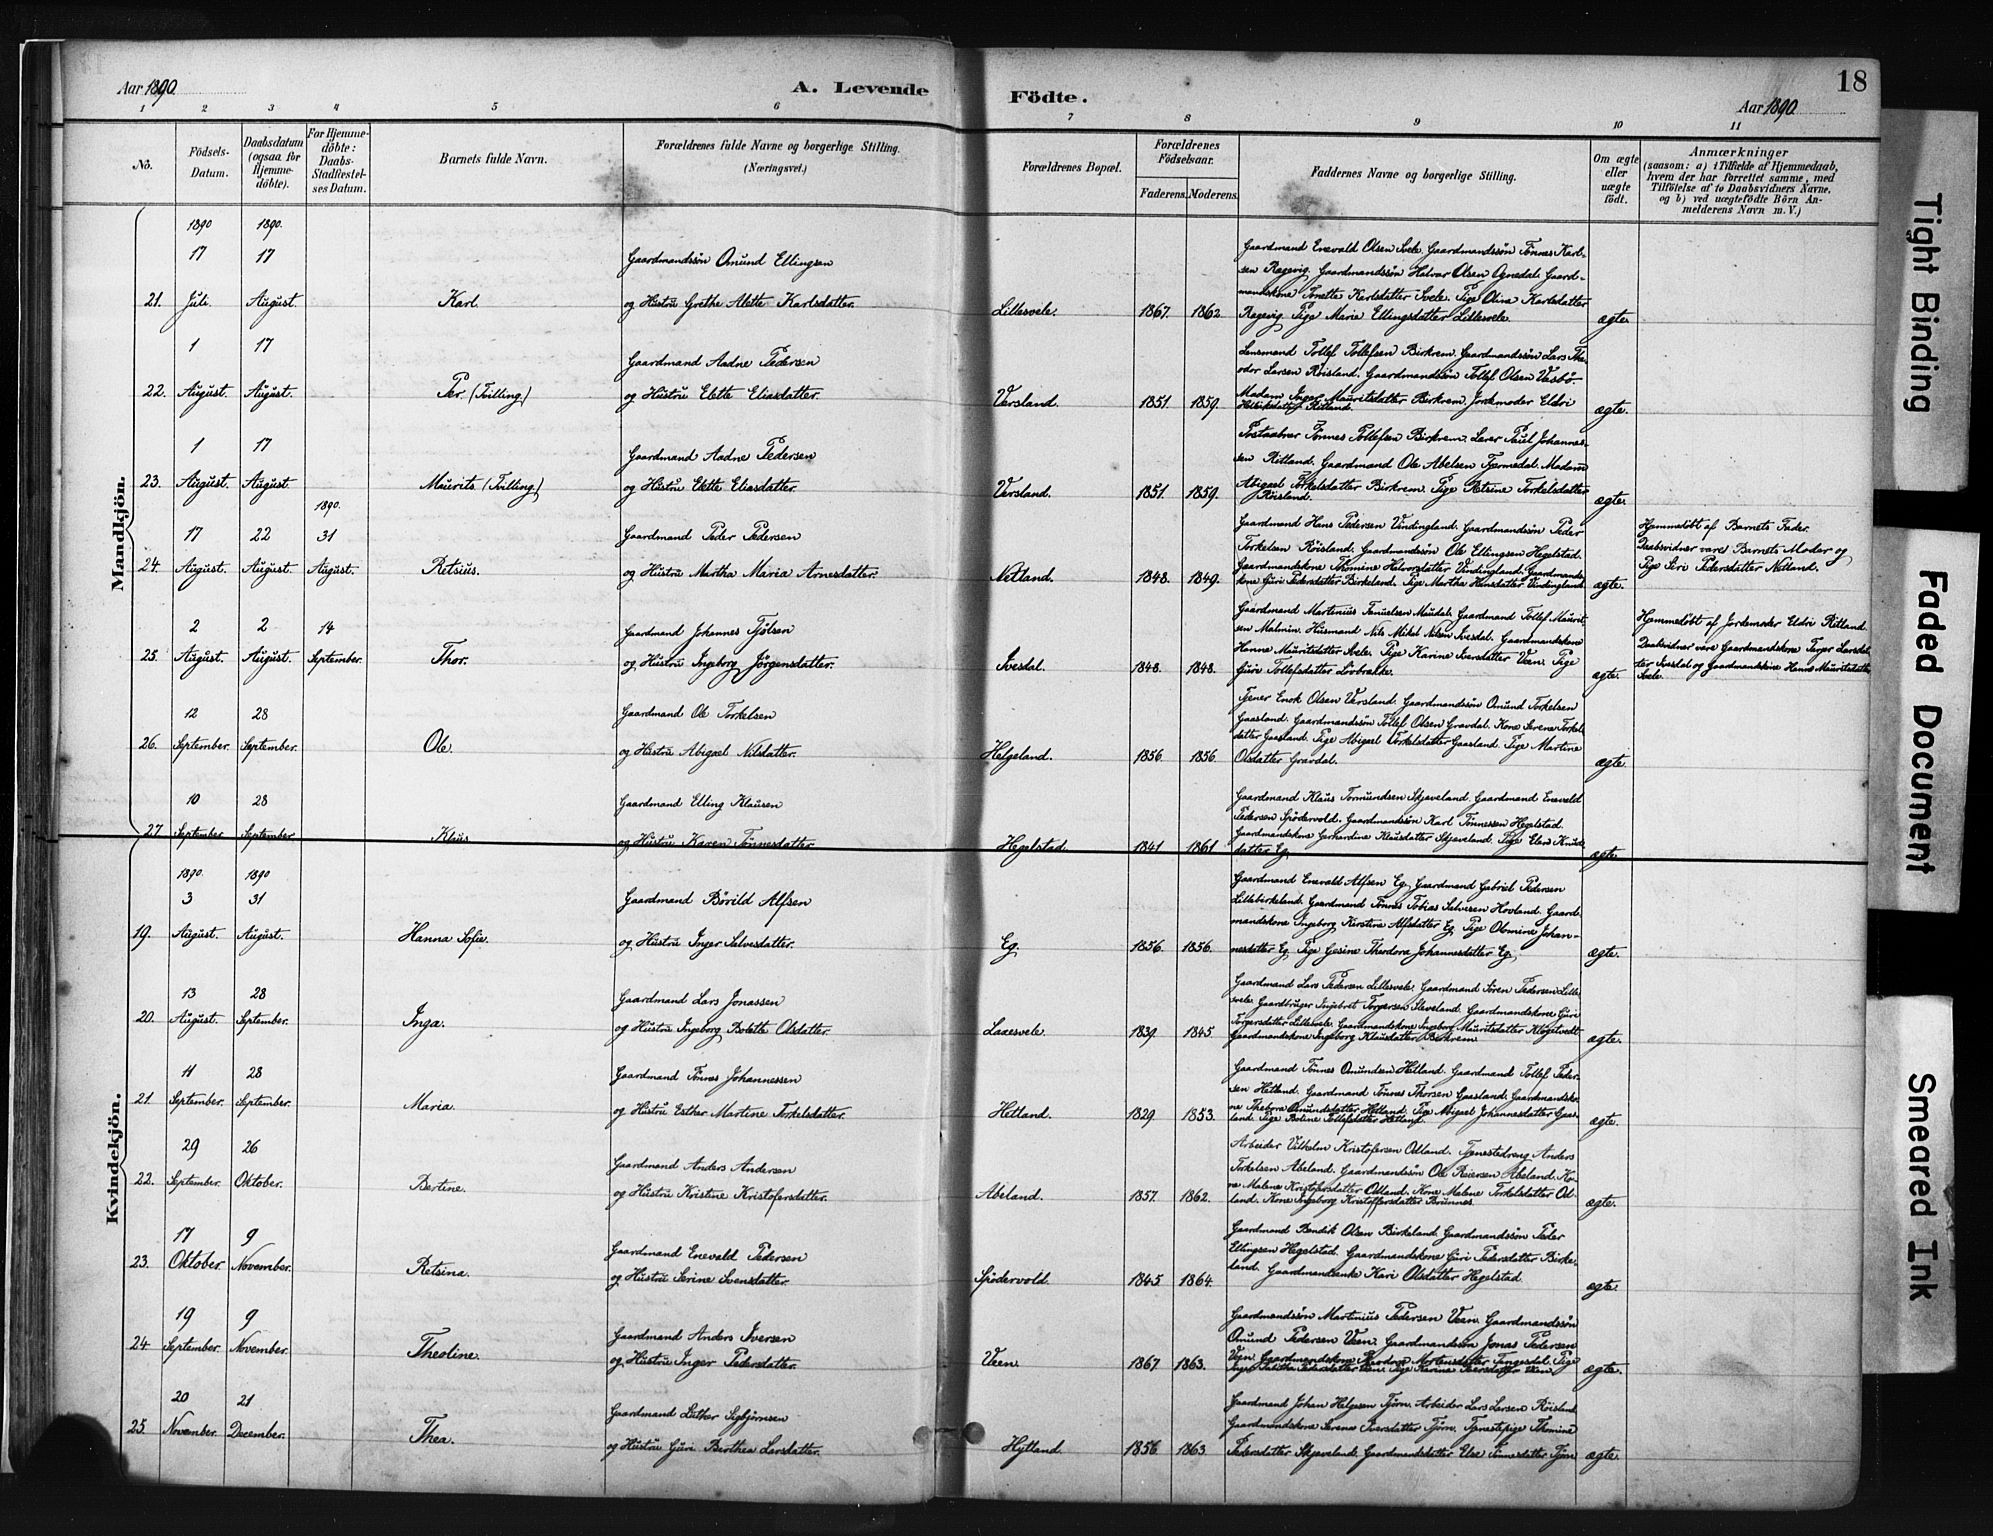 Aar 1890.
A. Levende
Födte.
Aar 1890.
18
1 2 3 4 5 6 7 8 9 10 11
No.
Födsels-Datum.
Daabsdatum (ogsaa for Hjemme-döbte).
For Hjemme-döbte: Daabs-Stadfestel-ses Datum.
Barnets fulde Navn.
Forældrenes fulde Navne og borgerlige Stilling.
(Næringsvei.)
Forældrenes Bopæl.
Forældrenes Födselsaar.
Faderens. Moderens.
Faddernes Navne og borgerlige Stilling.
Om ægte eller uægte födt.
Anmærkninger
(saasom: a) i Tilfælde af Hjemmedaab,
hvem der har forrettet samme, med
Tilföielse af to Daabsvidners Navne.
og b) ved uægtefödte Börn An-
melderens Navn m. V.)
Mandkjön.
1890 1890.
17 17 Gaardmandssön Omund Ellingsen
21. Juli. August. Karl. og Hustru Grethe Alette Karlsdatter. Lillesvele. 1867. 1862. ægte.
Gaardmand Enevald Olsen Svele. Gaardmandssön Tönnes Karl-
sen Rægevig. Gaardmandssön Halvar Olsen Ognedal. Gaard-
mandskone Tonette Karlsdatter Svele. Pige Olina Karlsdatter
Rægevig. Pige Marie Ellingsdatter Lillesvele.
1 17 Gaardmand Aadne Pedersen
22. August. August. Per. (Tvilling) og Hustru Elette Eliasdatter. Versland. 1851. 1859. ægte.
Lensmand Tollef Tollefsen Birkrem. Gaardmandssön Lars The-
odor Larsen Röisland. Gaardmandssön Tollef Olsen Vasbö.
Madam Inger Mauritsdatter Birkrem. Jordmoder Eldri
Ritland.
1 17 Gaardmand Aadne Pedersen
23. August. August. Maurits. (Tvilling) og Hustru Elette Eliasdatter. Versland. 1851. 1859. ægte.
Postaabner Tönnes Tollefsen Birkrem. Lærer Paul Johannes-
sen Ritland. Gaardmand Ole Abelsen Tjörmedal. Madam
Abigael Torkelsdatter Birkrem. Pige Petrine Torkelsdatter
Röisland.
1890.
17 22 31 Gaardmand Peder Pedersen
24. August. August. August. Retsius. og Hustru Martha Maria Arnesdatter. Netland. 1848. 1849. ægte.
Gaardmand Hans Pedersen Vindingland. Gaardmandssön Peder
Torkelsen Röisland. Gaardmandssön Ole Ellingsen Hegelstad.
Gaardmandskone Thomine Halvorsdatter Vindingland. Gaardmands-
kone Guri Pedersdatter Birkeland. Pige Martha Hansdatter Vindingland.
Hjemmedöbt af Barnets Fader.
Daabsvidner vare Barnets Moder og
Pige Siri Pedersdatter Netland.
2 2 14 Gaardmand Johannes Tjölsen
25. August. August. September. Thor. og Hustru Ingeborg Jörgensdatter. Ivesdal. 1848. 1848. ægte.
Gaardmand Martinius Tanuelsen Maudal. Gaardmand Tollef Maurit-
sen Malmin. Husmand Nils Mikal Nilsen Ivesdal. Gaardmandskone
Hanne Mauritsdatter Svele. Pige Karine Iversdatter Veen. Pige
Guri Tollefsdatter Lövbrække.
Hjemmedöbt af Jordemoder Eldri Ritland.
Daabsvidner vare Gaardmandskone Larsdat-
ter Ivesdal og Gaardmandskone Hanne Mauritsdatter
Svele.
12 28 Gaardmand Ole Torkelsen
26. September. September. Ole. og Hustru Abigael Nilsdatter. Helgeland. 1856. 1856. ægte.
Tjener Enok Olsen Versland. Gaardmandssön Omund Torkelsen
Gaasland. Gaardmandssön Tollef Olsen Gravdal. Kone Serene Torkel
datter Gaasland. Pige Abigael Torkelsdatter Gaasland. Pige Martine
Olsdatter Gravdal.
10 28 Gaardmand Elling Klausen
27. September. September. Klaus. og Hustru Karen Tönnesdatter. Hegelstad. 1841. 1861. ægte.
Gaardmand Klaus Tormundsen Skjæveland. Gaardmand Enevald
Pedersen Spödervold. Gaardmandssön Karl Tönnessen Hegelstad.
Gaardmandskone Gerhardine Klausdatter Skjæveland. Pige Elen Knud-
datter Eg.
Kvindekjön.
1890. 1890
3 31 Gaardmand Börild Alfsen
19. August. August. Hanna Sofie. og Hustru Inger Salvesdatter. Eg. 1856. 1856. ægte.
Gaardmand Enevald Alfsen Eg. Gaardmand Gabriel Pedersen
Lillebirkeland. Gaardmand Tönnes Tobias Salvesen Hovland. Gaard-
mandskone Ingeborg Kirstine Alfsdatter Eg. Pige Obmine Johan-
nesdatter Eg. Pige Gesine Theodora Johannesdatter Eg.
13 28 Gaardmand Lars Jonassen
20. August. September. Inga. og Hustru Ingeborg Bolette Olsdatter. Laxesvele. 1839. 1845. ægte.
Gaardmand Lars Pedersen Lillesvele. Gaardmand Sören Pedersen Lille-
svele. Gaardbruger Ingebret Torgersen Stenland. Gaardmandskone Guri
Torgersdatter Lillesvele. Gaardmandskone Ingeborg Mauritsdatter Klögetvedt.
Gaardmandskone Ingeborg Klausdatter Birkrem.
11 28 Gaardmand Tönnes Johannessen
21. September. September. Maria. og Hustru Esther Martine Torkelsdatter. Hetland. 1829. 1853. ægte.
Gaardmand Tönnes Omundsen Hetland. Gaardmand Tollef Peder-
sen Hetland. Gaardmand Tönnes Thorsen Gaasland. Gaardmandsko-
ne Omundsdatter Hetland. Pige Abigael Johannesdatter Gaas-
land. Pige Boline Tollefsdatter Hetland.
29 26 Gaardmand Anders Andersen
22. September. Oktober. Bertine. og Hustru Kristine Kristofersdatter. Abeland. 1857. 1862. ægte.
Arbeider Vilhelm Kristofersen Odland. Tjenestedreng Anders
Torkelsen Abeland. Gaardmandssön Ole Reiersen Abeland. Ko-
ne Malene Kristofersdatter Odland. Kone Malene Torkelsdatter Od-
land. Kone Ingeborg Kristoffersdatter Brunnes.
17 9 Gaardmand Enevald Pedersen
23. Oktober November. Retsina. og Hustru Serine Svensdatter. Spödervold. 1845 1864. ægte.
Gaardmand Bendik Olsen Birkeland. Gaardmandssön Peder
Ellingsen Hegelstad. Gaardmandskone Guri Pedersdatter Birke-
land. Gaardmandsenke Kari Olsdatter Hegelstad.
19 9 Gaardmand Anders Iversen
24. September. November. Theoline. og Hustru Inger Pedersdatter. Veen. 1867 1863. ægte.
Gaardmandssön Martinius Pedersen Veen. Gaardmandssön
Omund Pedersen Veen. Gaardmandssön Jonas Pedersen
Veen. Gaardmandskone Mortensdatter Tengesdal. Pige
Inger Pedersdatter Veen. Pige Karine Iversdatter Veen.
20 21 Gaardmand Luther Sigbjörnsen
25. November. December. Thea. og Hustru Guri Berthea Larsdatter. Hytland. 1856. 1863. ægte.
Gaardmand Johan Helgesen Tjörn. Arbeider Lars Larsen Röisland
Gaardmandskone Serene Iversdatter Tjörn. Tjenestepige Thomine
Pedersdatter Skjæveland. Gaardmandsdatter Else Tönnesdatter Tjörn
Tight Binding
Faded Document
Smeared Ink